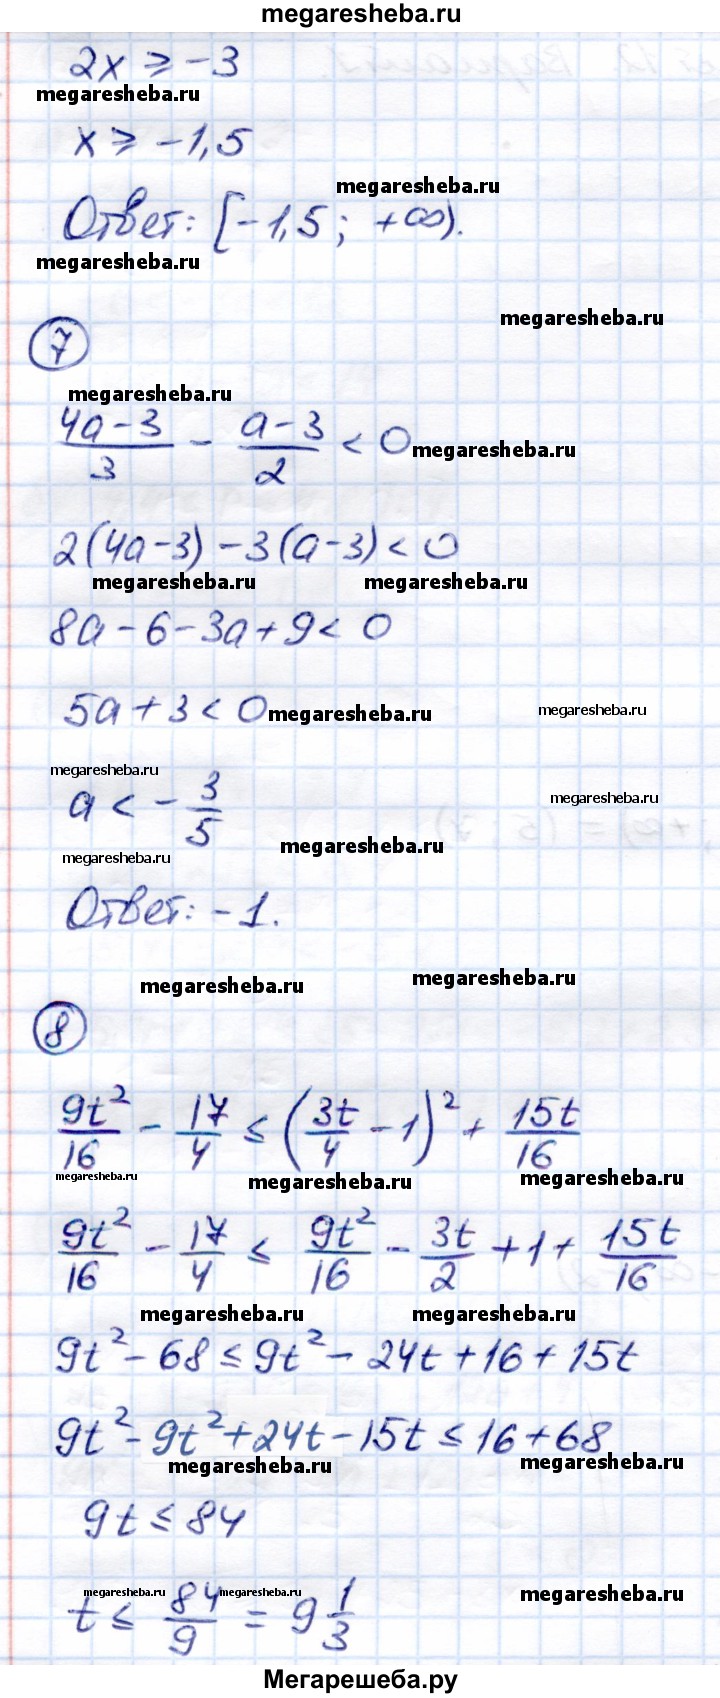 megaresheba.ru
2x ≥ -3
megaresheba.ru
x ≥ -1,5
megaresheba.ru
Ответ: [-1,5; +∞).
megaresheba.ru
megaresheba.ru
7
megaresheba.ru
(4a-3)/3 - (a-3)/2 < 0
megaresheba.ru
2(4a-3)-3(a-3)<0
megaresheba.ru megaresheba.ru
8a-6-3a+9<0
5a+3<0
megaresheba.ru megaresheba.ru
megaresheba.ru
a < -3/5
megaresheba.ru
megaresheba.ru
megaresheba.ru
Ответ: -1.
megaresheba.ru megaresheba.ru
8
9t²/16 - 17/4 ≤ (3t/4 - 1)² + 15t/16
megaresheba.ru megaresheba.ru megaresheba.ru
9t²/16 - 17/4 ≤ 9t²/16 - 3t/2 + 1 + 15t/16
megaresheba.ru megaresheba.ru
9t²-68≤9t²-24t+16+15t
9t²-9t²+24t-15t≤16+68
megaresheba.ru megaresheba.ru
9t≤84
megaresheba.ru megaresheba.ru megaresheba.ru
t ≤ 84/9 = 9 1/3
Мегарешеба.ру